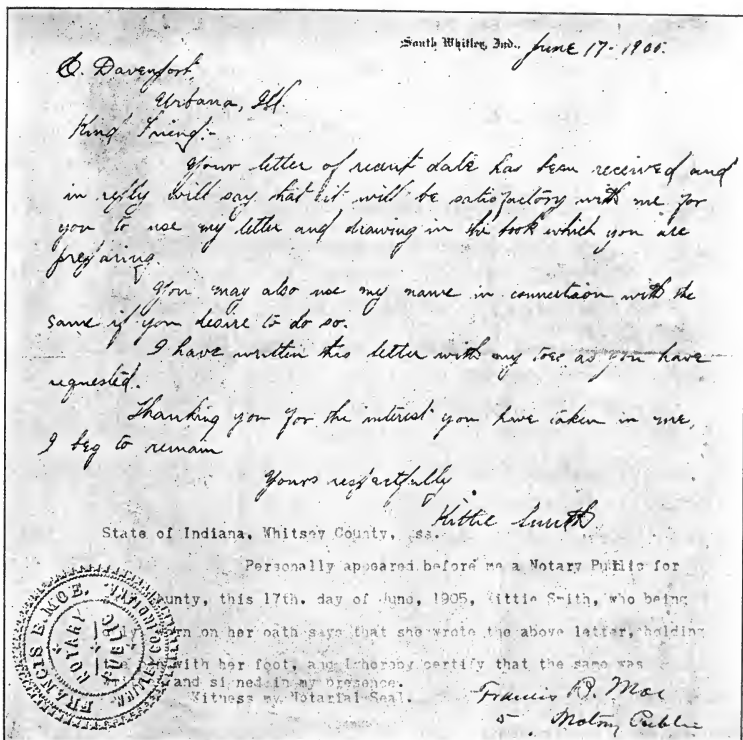 South Whitley, Ind., June 17 - 1905.
E. Davenport,
Urbana, Ill.
Kind Friend:-
Your letter of recent date has been received and
in reply will say that it will be satisfactory with me for
you to use my letter and drawing in the book which you are
preparing.
You may also use my name in connection with the
same if you desire to do so.
I have written this letter with my toes as you have
requested.
Thanking you for the interest you have taken in me,
I beg to remain
Yours respectfully
Kittie Smith
State of Indiana, Whitsey County, ss.
Personally appeared before me a Notary Public for
County, this 17th. day of June, 1905, Kittie Smith, who being
on her oath says that she wrote the above letter, holding
with her foot, and I hereby certify that the same was
and signed in my presence.
Witness my Notarial Seal.
Francis E. Moe
Notary Public
FRANCIS E. MOE.
NOTARY PUBLIC